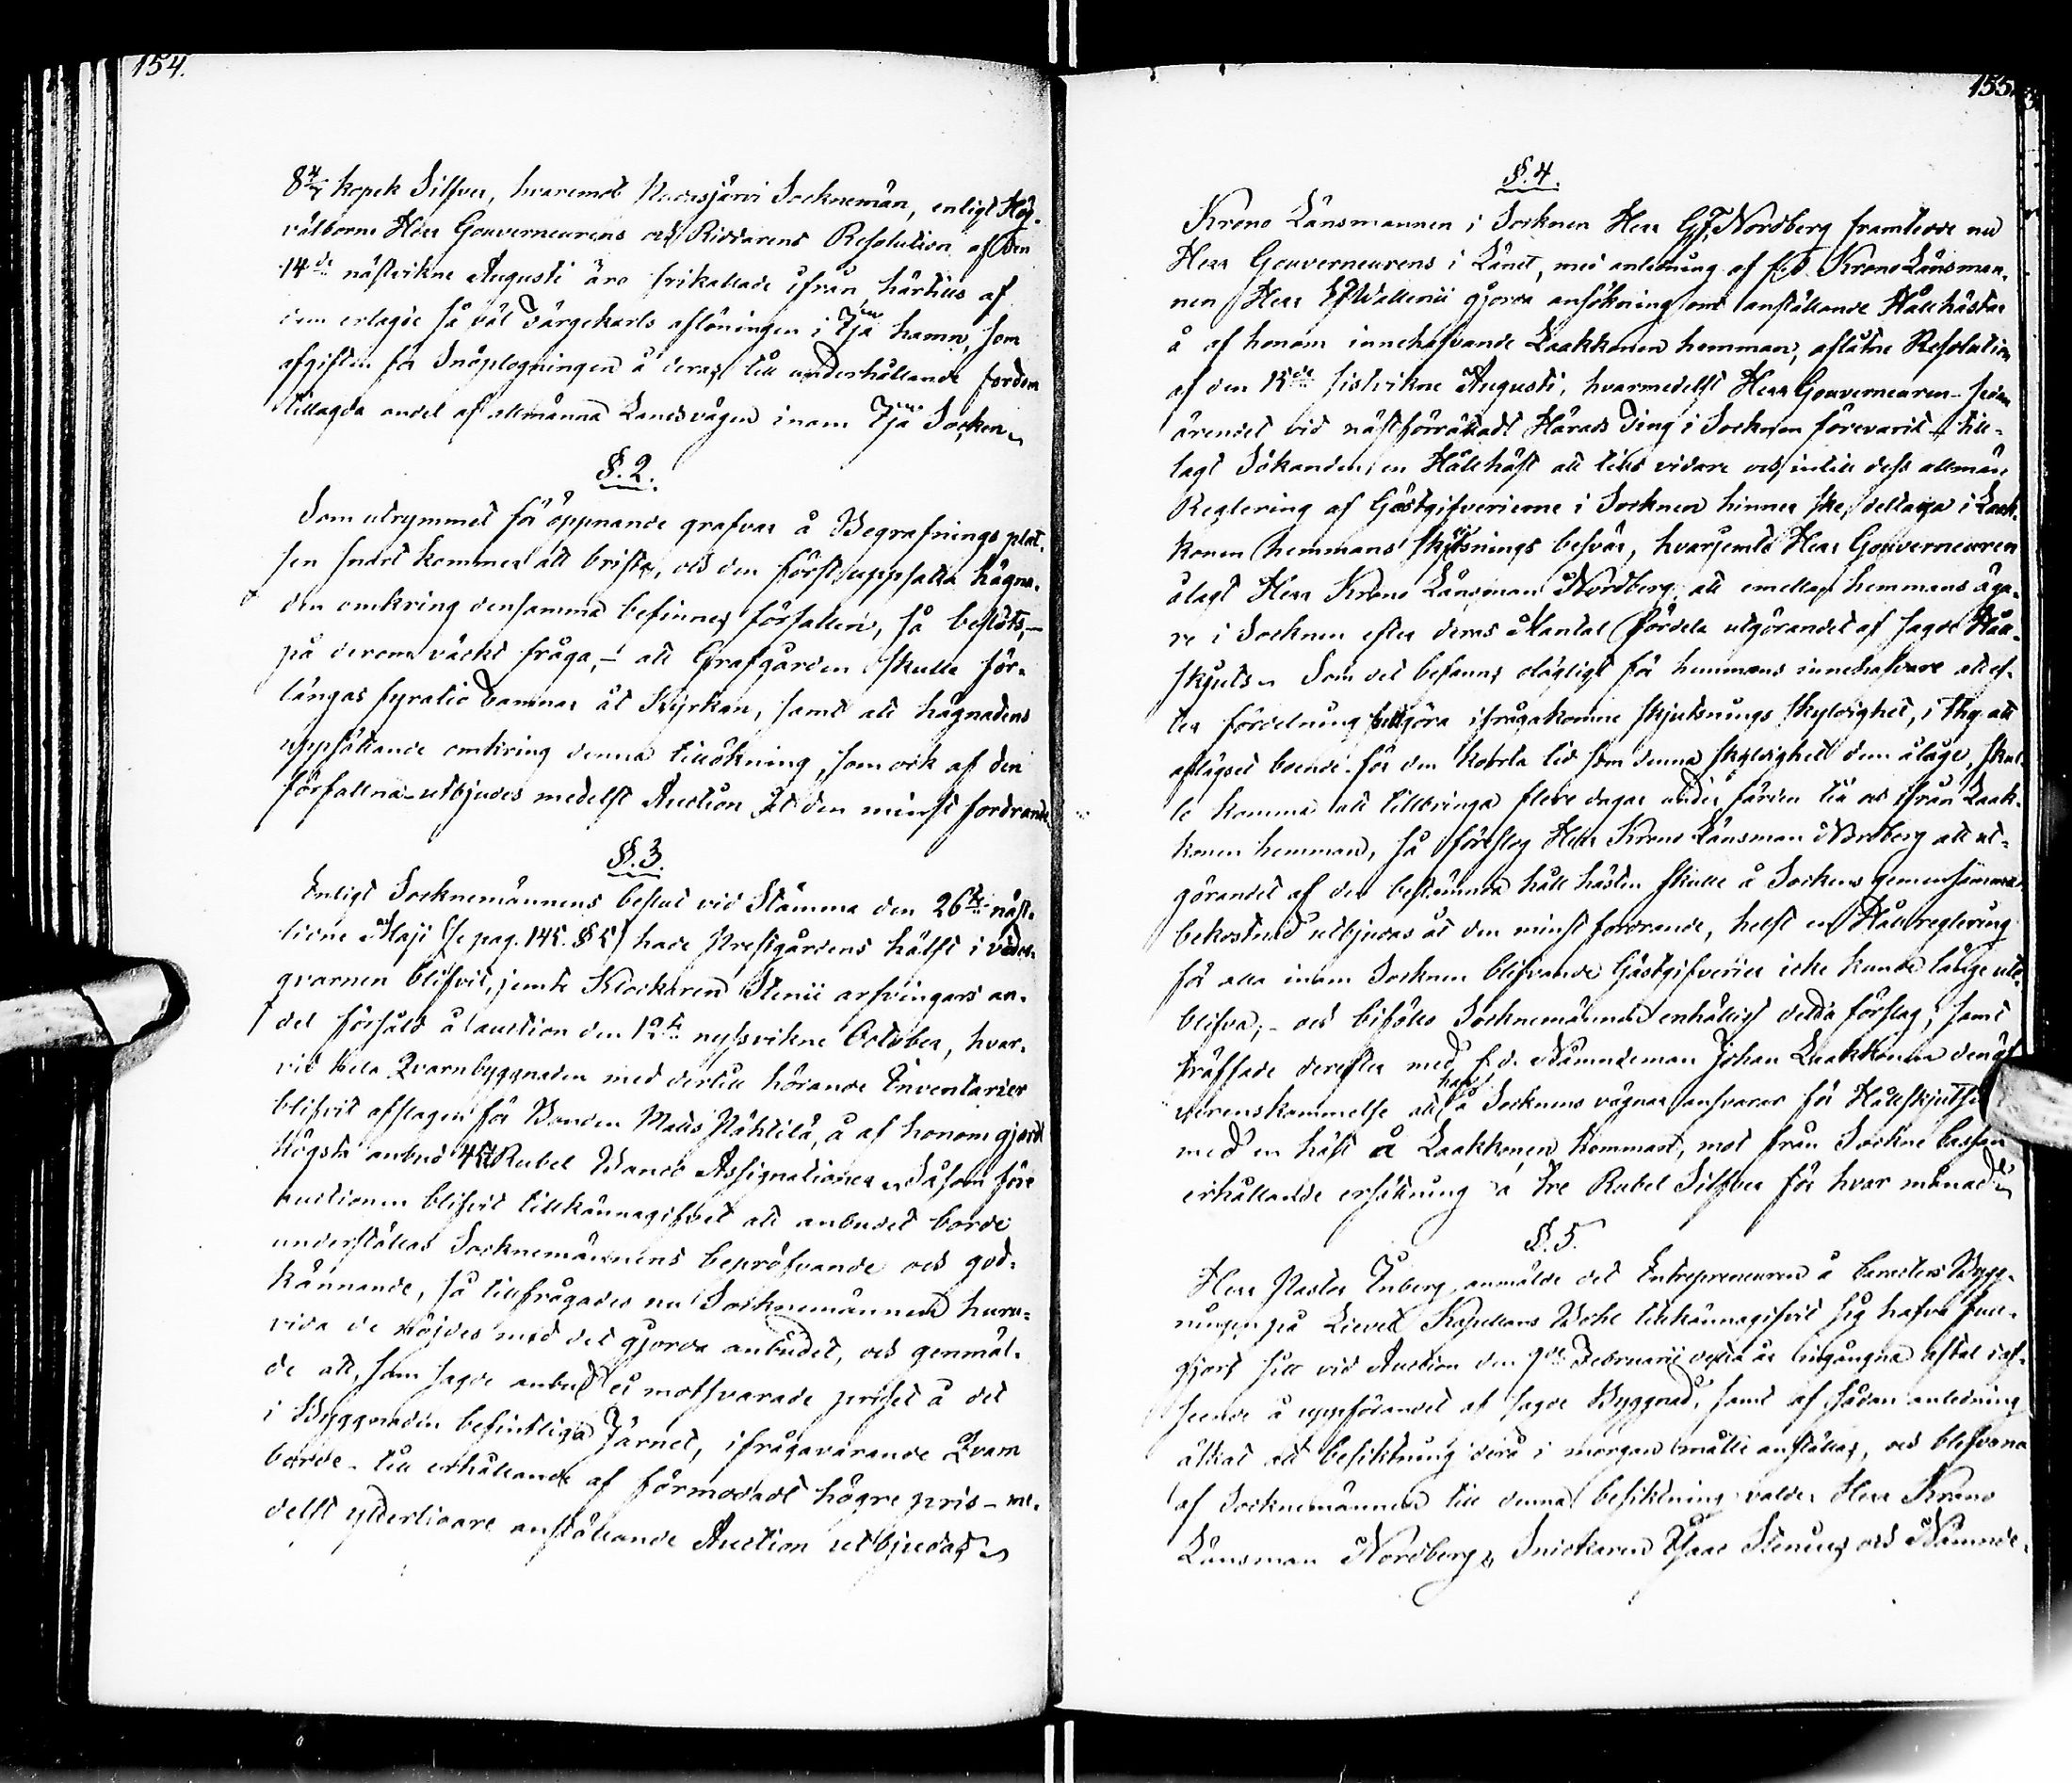 154.
8 4/7 kopek Silfver, hvaremot Socknemän, enligt Hög-
välborne Herr Gouverneurens och Riddarens Resolution af den
14de nästvikne Augusti äro frikallade ifrån, härtills af
dem erlagde så väl Färgekarls aflöningen i Ijå hamn, som
afgiften för Snöplogningen å deras till underhållande fordom
tillagda andel af allmänna Landsvägen inom Ijå Socken
§. 2.
Som utrymmet för öppnande grafvar å Begrafnings plat-
sen snart kommer att brista, och den först uppsatta hägna-
den omkring densamma befinnes förfallen, så beslöts, –
på derom väckt fråga, – att Grafgården skulle för-
längas fyratio Famnar åt Kyrkan, samt att hägnadens
uppsättande omkring denna tillökning, som ock af den
förfallna utbjudes medelst Auction åt den minst fordrande
§. 3.
Enligt Socknemännens beslut vid Stämma den 26te näst-
lidne Maji (Se pag. 145. § 5) hade Prestgårdens hälft i väder-
qvarnen blifvit, jemte Klockaren Stenii arfvingars an-
del försåld å auction den 12te nyssvikne October, hvar-
vid hela Qvarnbyggnaden med dertill hörande Inventarier
blifvit afslagen för Bonden Matts Pähtilä, å af honom gjordt
högsta anbud Rubel Banco Assignationer. Såsom före
auctionen blifvit tillkännagifvet att anbudet borde
underställas Socknemännens bepröfvande och god-
kännande, så tillfrågades nu Socknemännen huru-
vida de nöjdes med det gjorda anbudet, och genmäl-
de att, som sagde anbud ei motsvarade priset å det
i Byggnaden befintliga Järnet, ifrågavarande Qvarn
borde – till erhållande af förmodadt högre pris – me-
delst ytterligare anställande Auction utbjudas
155.
§. 4.
Krono Länsmannen i Socknen Herr Nordberg framtedde nu
Herr Gouverneurens i Länet, med anledning af f.d. Krono Länsman-
nen Herr Wallenii gjorda ansökning om anställande Hållhästar
å af honom innehafvande Laakkonen hemman, aflåtne Resolution
af den 15de sistvikne Augusti, hvarmedelst Herr Gouverneuren – sedan
ärendet vid nästförrättadt Härads Ting i Socknen förevarit – till-
lagt Sökanden, en Hållhäst att tills vidare och intill dess allmän
Reglering af Gästgifverierne i Socknen hinner ske, deltaga i Laak-
konen hemmans skjutsnings besvär, hvarjemte Herr Gouverneuren
ålagt Herr Krono Länsman Nordberg att emellan hemmans äga-
re i Socknen efter deras Mantal fördela utgörandet af sagde Håll-
skjuts. Som det befanns olägligt för hemmans innehafvare att ef-
ter fördelning fullgöra ifrågakomne skjutsnings skyldighet, i thy att
aflägset boende för den korta tid som denna skyldighet dem ålåge, skul-
le komma att tillbringa flere dagar under färden till och ifrån Laak-
konen hemman, så föreslog Herr Krono Länsman Nordberg att ut-
görandet af den bestämda håll hästen skulle å Sockens gemensamma
bekostnad utbjudas åt den minst fordrande, helst en Hållreglering
för alla inom Socknen blifvande Gästgifverier icke kunde länge ute-
blifva; – och biföllo Socknemännen enhälligt detta förslag, samt
träffade derefter med f.d. Nämndeman Johan Laakkonen den öf-
verenskommelse att han å Socknens vägnar ansvarar för Hållskjutsen
med en häst å Laakkonen hemmart, mot från Sockne Cassan
erhållande ersättning å tre Rubel Silfver för hvar månad
§. 5.
Herr Pastor Enberg anmälde det Entrepreneuren å Bygg-
ningen på Kapellans Bohl tillkännagifvit sig hafva full-
gjort sitt vid Auction den 9de Februarii detta år ingångna aftal i af-
seende å uppförandet af sagde Byggnad, samt af sådan anledning
åtkat att besiktning derå i morgon måtte anställas, och blefvono
af Socknemännen till denna besiktning valde Herr Krono
Länsman Nordberg, Snickaren Isaac Stenius, och Nämnde-